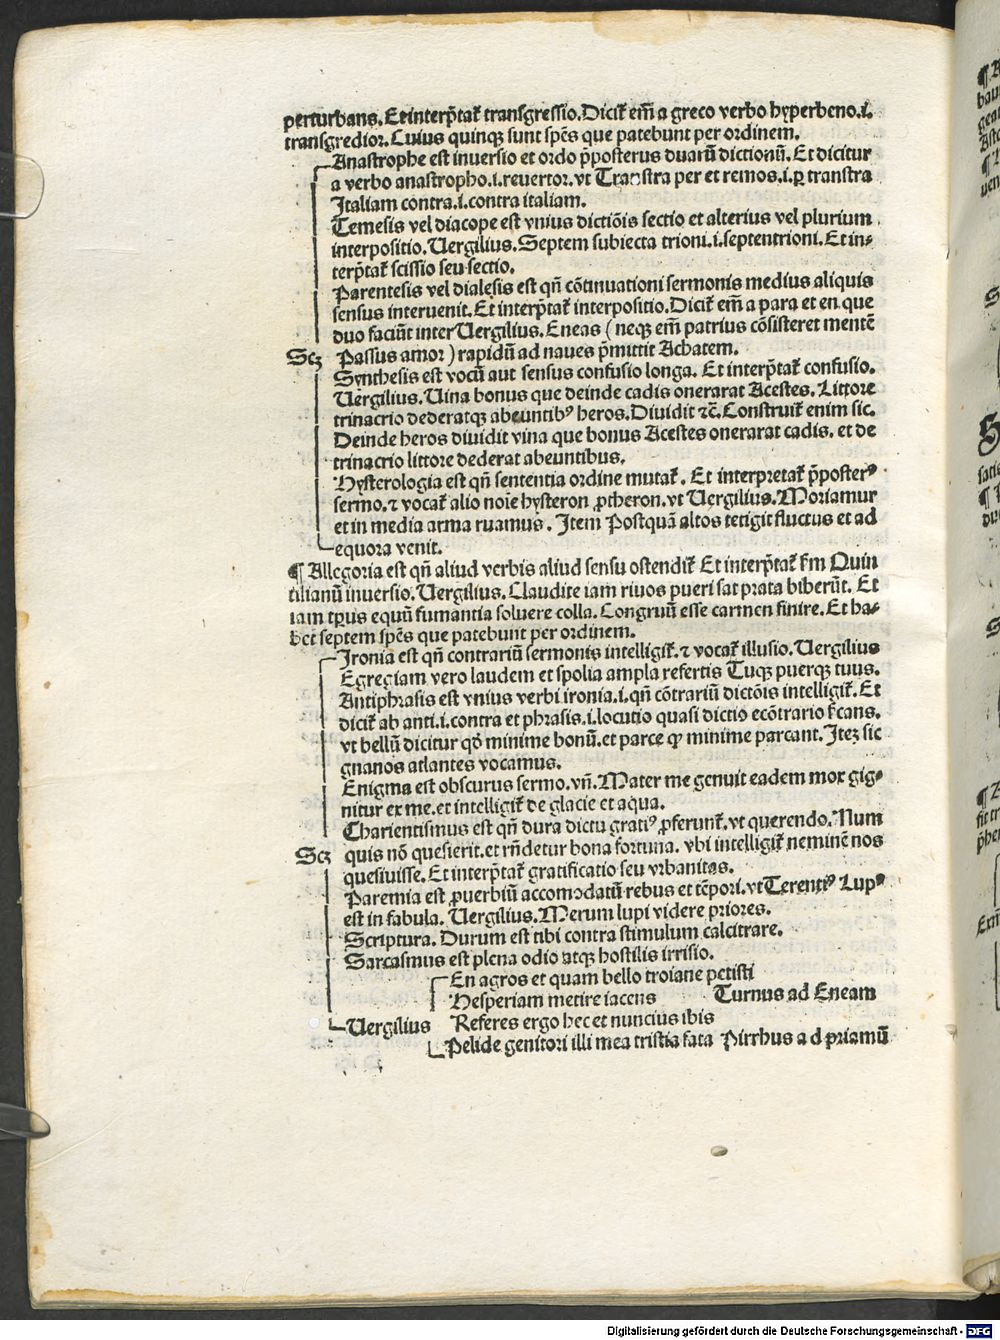 perturbans. Et interp̄tat᷑ transgressio. Dicit᷑ em̄ a greco verbo hyperbeno .i.
transgredior. Cuius quinqꝫ sunt sp̄es que patebunt per ordinem.
Anastrophe est inuersio et ordo p̄posterus duarū dictionū. Et dicitur
a verbo anastropho .i. reuertor. vt Transtra per et remos .i. ꝑ transtra
Italiam contra .i. contra italiam.
Temesis vel diacope est vnius dictiōis sectio et alterius vel plurium
interpositio. Uergilius. Septem subiecta trioni .i. septentrioni. Et in-
terp̄tat᷑ scissio seu sectio.
Parentesis vel dialesis est qn̄ cōtinuationi sermonis medius aliquis
sensus interuenit. Et interp̄tat᷑ interpositio. Dicit᷑ em̄ a para et en que
duo faciūt inter Uergilius. Eneas (neqꝫ em̄ patrius cōsisteret mentē
Scꝫ Passus amor) rapidū ad naues p̄mittit Achatem.
Synthesis est vocū aut sensus confusio longa. Et interp̄tat᷑ confusio.
Uergilius. Uina bonus que deinde cadis onerarat Acestes. Littore
trinacrio dederatqꝫ abeuntibꝰ heros. Diuidit ⁊c̄. Construit᷑ enim sic.
Deinde heros diuidit vina que bonus Acestes onerarat cadis. et de
trinacrio littore dederat abeuntibus.
Hysterologia est qn̄ sententia ordine mutat᷑. Et interpretat᷑ p̄posterꝰ
sermo. ⁊ vocat᷑ alio noīe hysteron ꝓtheron. vt Uergilius. Moriamur
et in media arma ruamus. Item Postquā altos tetigit fluctus et ad
equora venit.
¶ Allegoria est qn̄ aliud verbis aliud sensu ostendit᷑ Et interp̄tat᷑ ẜm Quin
tilianū inuersio. Uergilius. Claudite iam riuos pueri sat prata biberūt. Et
iam tp̄us equū fumantia soluere colla. Congruū esse carmen finire. Et ha-
bet septem sp̄es que patebunt per ordinem.
Ironia est qn̄ contrariū sermonis intelligit᷑. ⁊ vocat᷑ illusio. Uergilius
Egregiam vero laudem et spolia ampla refertis Tuqꝫ puerqꝫ tuus.
Antiphrasis est vnius verbi ironia .i. qn̄ cōtrariū dictōis intelligit᷑. Et
dicit᷑ ab anti .i. contra et phrasis .i. locutio quasi dictio ecōtrario ẜcans.
vt bellū dicitur qḋ minime bonū. et parce ꝙ minime parcant. Iteꝫ sic
gnanos atlantes vocamus.
Enigma est obscurus sermo. vn̄. Mater me genuit eadem mox gig-
nitur ex me. et intelligit᷑ de glacie et aqua.
Charientismus est qn̄ dura dictu gratiꝰ ꝓferunt᷑. vt querendo. Num
Scꝫ quis nō quesierit. et rn̄detur bona fortuna. vbi intelligit᷑ neminē nos
quesiuisse. Et interp̄tat᷑ gratificatio seu vrbanitas.
Paremia est ꝓuerbiū accomodatū rebus et tēpori. vt Terentiꝰ Lupꝰ
est in fabula. Uergilius. Merum lupi videre priores.
Scriptura. Durum est tibi contra stimulum calcitrare.
Sarcasmus est plena odio atqꝫ hostilis irrisio.
En agros et quam bello troiane petisti
Hesperiam metire iacens Turnus ad Eneam
Uergilius Referes ergo hec et nuncius ibis
Pelide genitori illi mea tristia fata Pirrhus ad priamū
Digitalisierung gefördert durch die Deutsche Forschungsgemeinschaft - DFG